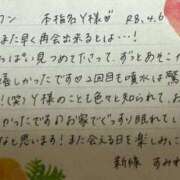 ワン 本指名Y様♡ R8.4.6
また早く再会出来るとは…!
おっぱい見つめてさって、ずっとあそこが
嬉しかったです♡2回目も噴水は驚
!(笑)Y様の事色々と知られてお
のでお家でぐっすり眠れてし
思います!また会える日を楽しみに
新妻 すみれ